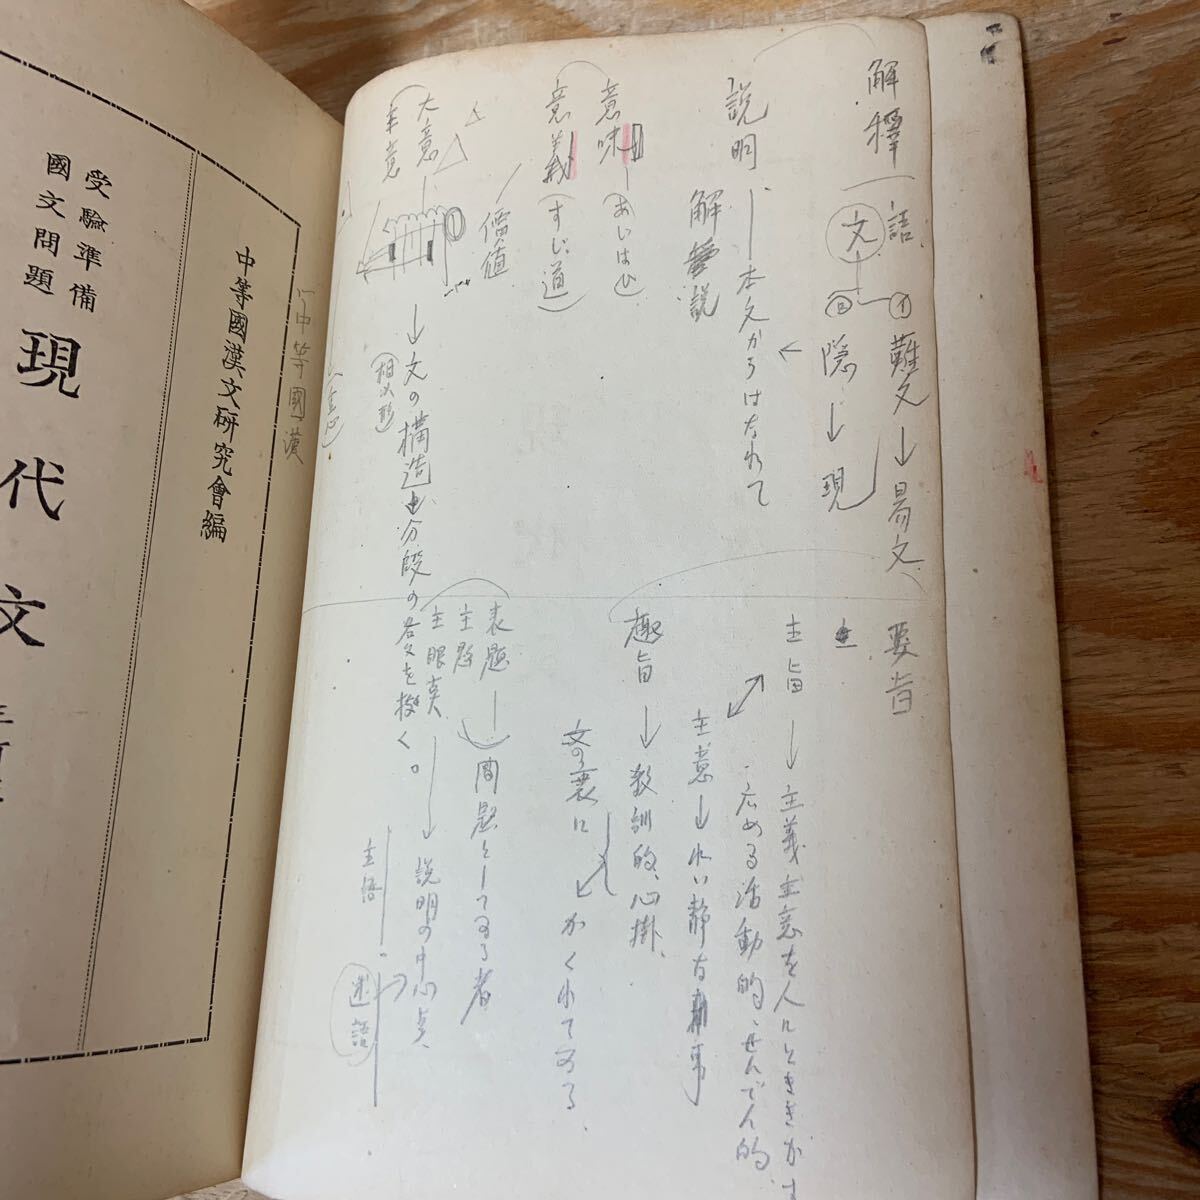 解釋
語
文
㋑難文→易文
㋺隠→現
説明―本文からはなれて
解説
意味―(あいはひ)
意義(すじ道)
價値
大意
→文の構造
分段の各文を
要旨
主旨→主義主意を人にときき
広める活動的、せんでん的
主意→
静な事
趣旨→教訓的、心掛
文の裏に
かくれてゐる
表題
主題
問題としてゐる者
主眼点→説明の中心点
主語
述語
中等國漢
中等國漢文研究會編
受驗準備
國文問題
現代文